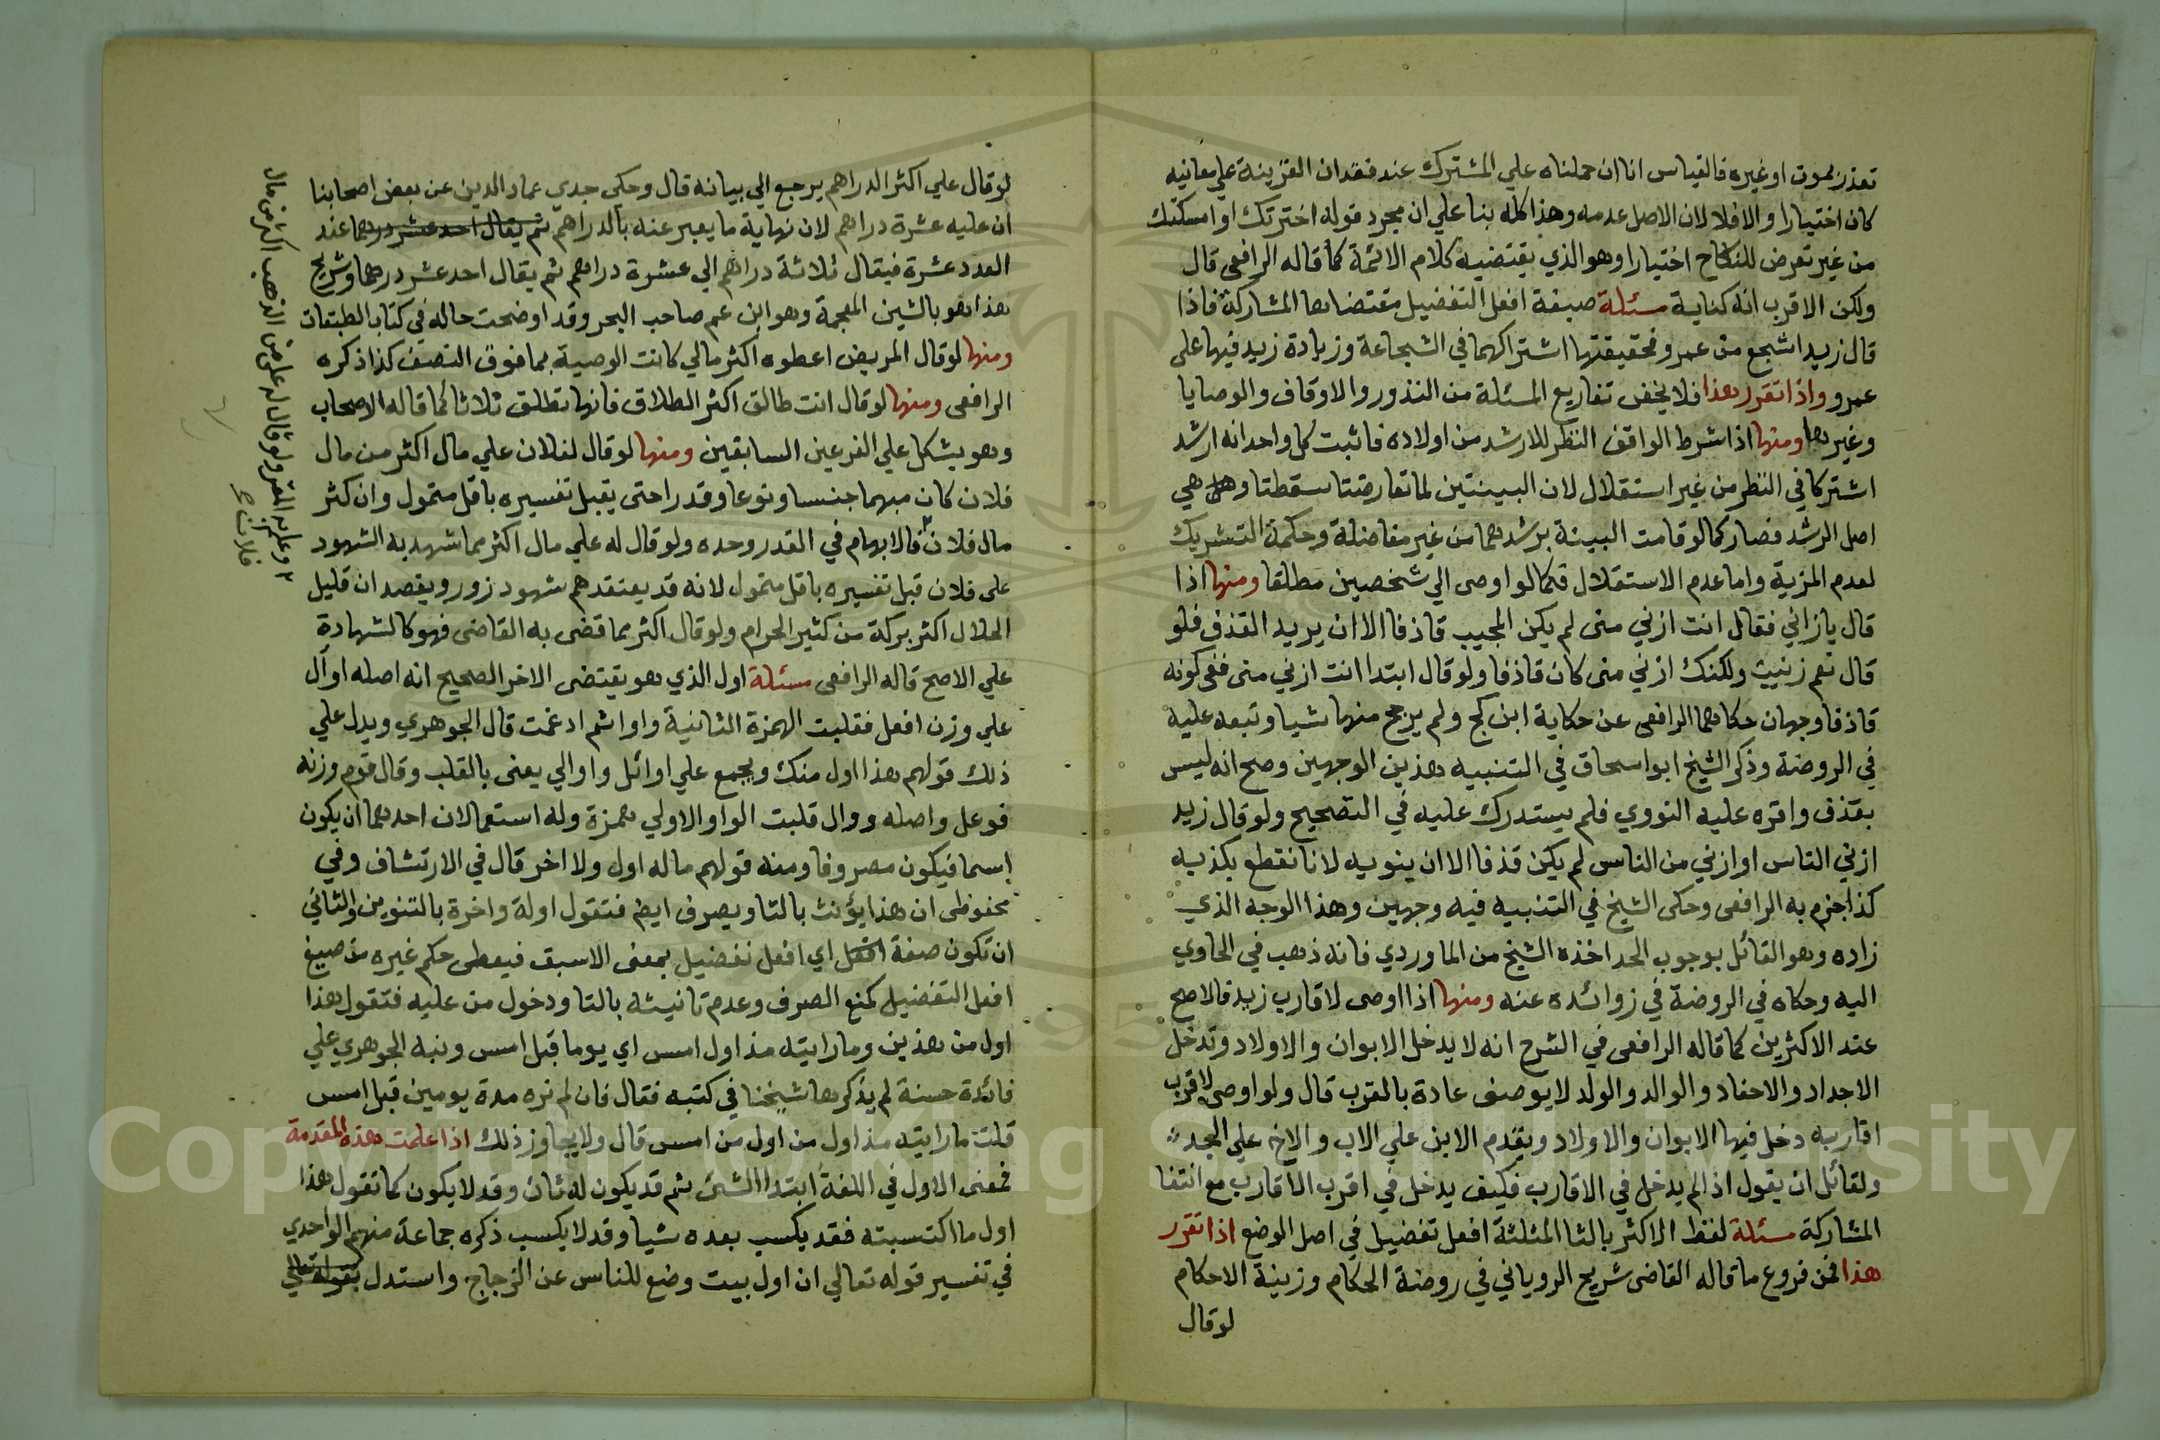 تعذر بموت او غيره فالقياس انا ان حملناه علي المشترك عند فقدان القرينة علي معانيه
كان اختيارا والا فلا لان الاصل عدمه وهذا كله بنا علي ان مجرد قوله اخترتك او امسكتك
من غير تعرض للنكاح اختيارا وهو الذي يقتضيه كلام الائمة كما قاله الرافعي قال
ولكن الاقرب انه كناية مسئلة صيغة افعل التفضيل مقتضاها المشاركة فاذا
قال زيد اشجع من عمرو فحقيقتها اشتراكهما في الشجاعة وزيادة زيد فيها على
عمرو واذا تقرر هذا فلا يخفى تفاريع المسئلة من النذور والاوقاف والوصايا
وغيرها ومنها اذا شرط الواقف النظر للارشد من اولاده فاثبت كل واحد انه ارشد
اشتركا في النظر من غير استقلال لان البينتين لما تعارضتا سقطتا وهل هي
اصل الرشد فصار كما لو قامت البينة برشدهما من غير مفاضلة وحكمة التشريك
لعدم المزية واما عدم الاستقلال فكما لو اوصى الي شخصين مطلقا ومنها اذا
قال يا زاني فقال انت ازني مني لم يكن المجيب قاذفا الا ان يريد القذف فلو
قال نعم زنيت ولكنك ازني مني كان قاذفا ولو قال ابتدا انت ازني مني ففي كونه
قاذفا وجهان حكاهما الرافعي عن حكاية ابن كج ولم يرجح منها شيا وتبعه عليه
في الروضة وذكر الشيخ ابو اسحاق في التنبيه هذين الوجهين وصح انه ليس
بقذف واقره عليه النووي فلم يستدرك عليه في التصحيح ولو قال زيد
ازني الناس او ازني من الناس لم يكن قذفا الا ان ينويه لانا نقطع بكذبه
كذا جزم به الرافعي وحكى الشيخ في التنبيه فيه وجهين وهذا الوجه الذي
زاده وهو القائل بوجوب الحد اخذه الشيخ من الماوردي فانه ذهب في الحاوي
اليه وحكاه في الروضة في زوائده عنه ومنها اذا اوصى لاقارب زيد فالاصح
عند الاكثرين كما قاله الرافعي في الشرح انه لا يدخل الابوان والاولاد وتدخل
الاجداد والاحفاد والوالد والولد لا يوصف عادة بالقرب قال ولو اوصى لاقرب
اقاربه دخل فيها الابوان والاولاد ويقدم الابن علي الاب والاخ علي الجد
ولقائل ان يقول اذا لم يدخل في الاقارب فكيف يدخل في اقرب الاقارب مع انتفا
المشاركة مسئلة لفظ الاكثر بالثا المثلثة افعل تفضيل في اصل الوضع اذا تقرر
هذا فمن فروع ما قاله القاضي شريح الروياني في روضة الحكام وزينة الاحكام
لو قال
لو قال علي اكثر الدراهم يرجع الي بيانه قال وحكى جدي عماد الدين عن بعض اصحابنا
ان عليه عشرة دراهم لان نهاية ما يعبر عنه بالدراهم ثم يقال احد عشر درهما عند
العدد عشرة فيقال ثلاثة دراهم الي عشرة دراهم ثم يقال احد عشر درهما وشريح
هذا هو بالشين المعجمة وهو ابن عم صاحب البحر وقد اوضحت حاله في كتاب الطبقات
ومنها لو قال المريض اعطوه اكثر مالي كانت الوصية بما فوق النصف كذا ذكره
الرافعي ومنها لو قال انت طالق اكثر الطلاق فانها تطلق ثلاثا كما قاله الاصحاب
وهو يشكل علي الفرعين السابقين ومنها لو قال لفلان علي مال اكثر من مال
فلان كان مبهما جنسا ونوعا وقدرا حتى يقبل تفسيره باقل متمول وان كثر
مال فلان ٢ فالابهام في القدر وحده ولو قال له علي مال اكثر مما شهد به الشهود
على فلان قبل تفسيره باقل متمول لانه قد يعتقدهم شهود زور ويقصد ان قليل
الحلال اكثر بركة من كثير الحرام ولو قال اكثر مما قضى به القاضي فهو كالشهادة
علي الاصح قاله الرافعي مسئلة اول الذي هو يقتضى الاخر الصحيح انه اصله اوأل
علي وزن افعل فقلبت الهمزة الثانية واوا ثم ادغمت قال الجوهري ويدل علي
ذلك قولهم هذا اول منك ويجمع علي اوائل واوالي يعني بالقلب وقال قوم وزنه
فوعل واصله ووال قلبت الواو الاولي همزة وله استعمالان احدهما ان يكون
اسما فيكون مصروفا ومنه قولهم ماله اول ولا اخر قال في الارتشاف وفي
محفوظي ان هذا يؤنث بالتا ويصرف ايض فتقول اولة واخرة بالتنوين والثاني
ان تكون صفة افعل اي افعل تفضيل بمعنى الاسبق فيعطى حكم غيره من صيغ
افعل التفضيل كمنع الصرف وعدم تانيثه بالتا ودخول من عليه فتقول هذا
اول من هذين وما رايته مذ اول امس اي يوما قبل امس ونبه الجوهري علي
فائدة حسنة لم يذكرها شيخنا في كتبه فقال فان لم تره مدة يومين قبل امس
قلت ما رايته مذ اول من اول من امس قال ولا يجاوز ذلك اذا علمت هذه المقدمة
فمعنى الاول في اللغة ابتدا الشئ ثم قد يكون له ثان وقد لا يكون كما تقول هذا
اول ما اكتسبته فقد يكسب بعده شيا وقد لا يكسب ذكره جماعة منهم الواحدي
في تفسير قوله تعالي ان اول بيت وضع للناس عن الزجاج واستدل بقوله تعالي
٢ وعليه القر ولو قال له علي من الذهب اكثر من مال
فلان صح
Copyright © King Saud University